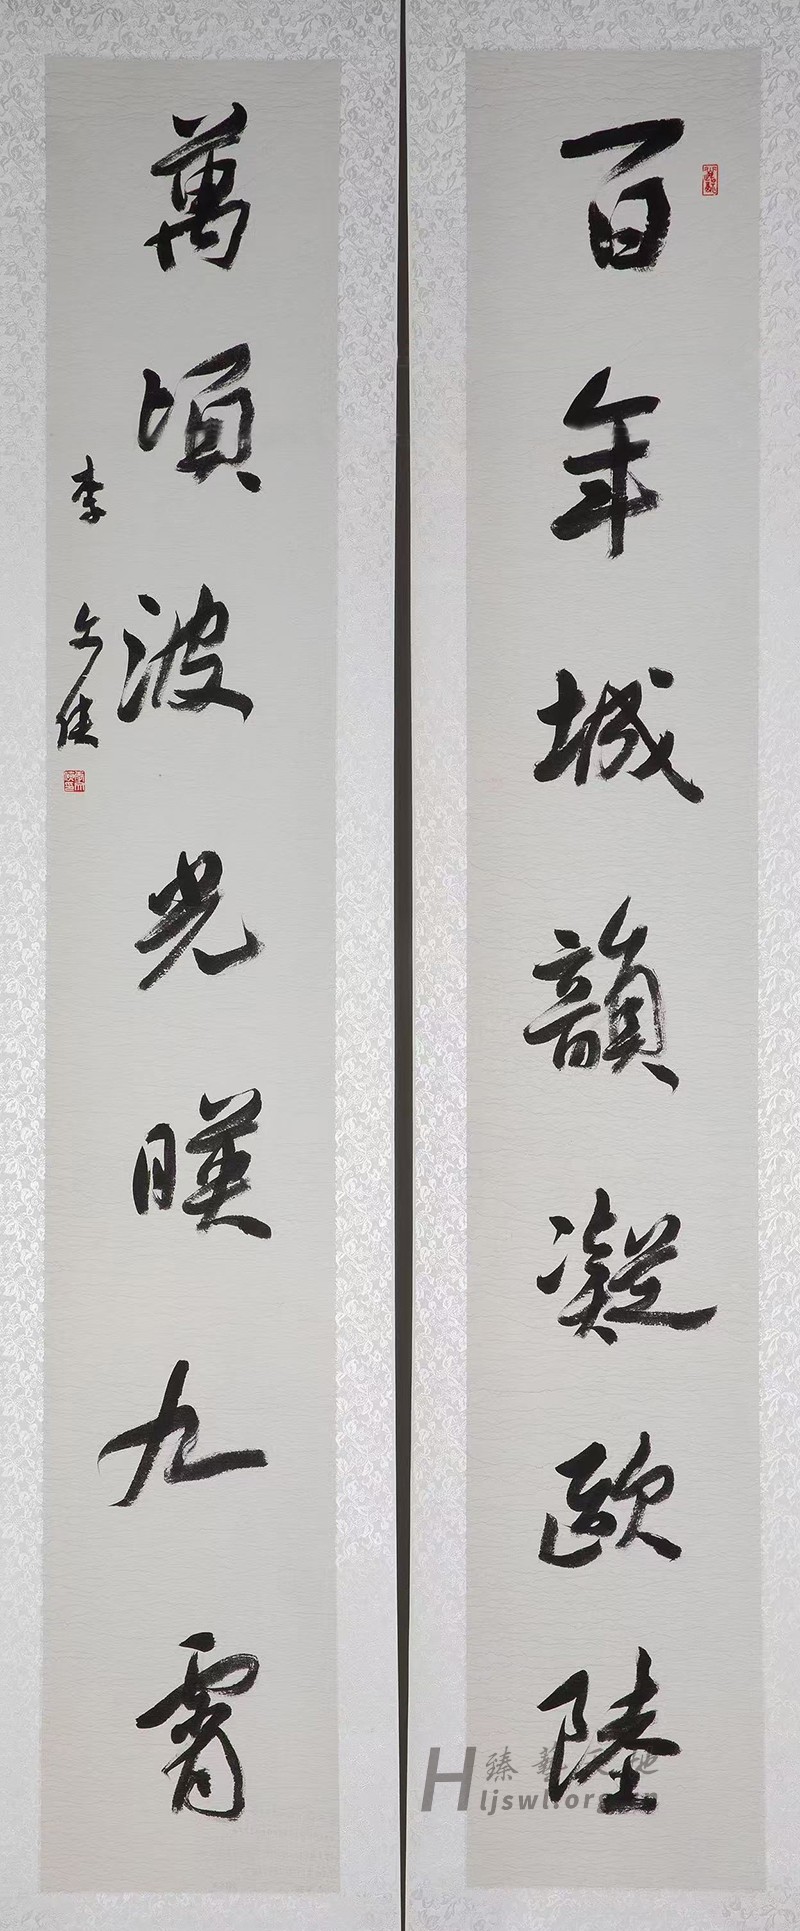 百年城韻凝歐陸
萬頃波光暎九霄
李文佳
臻藝天地
ljswl.org.cn